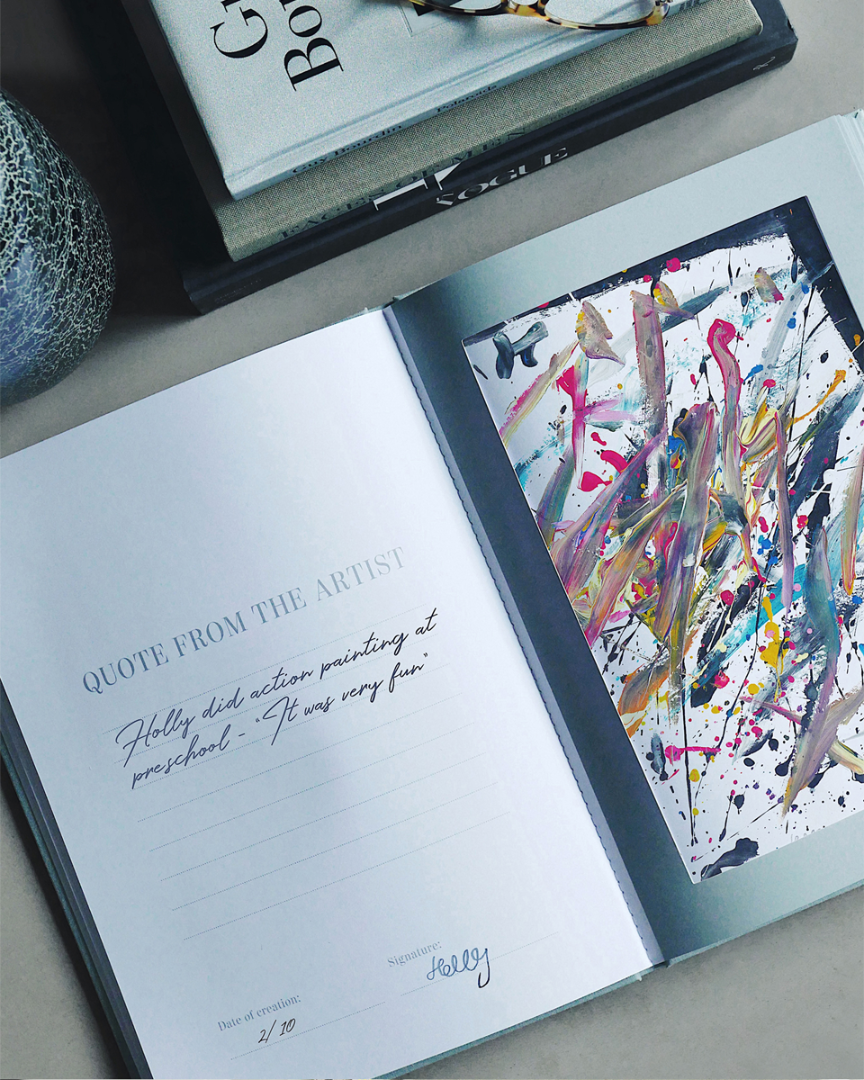 VOGUE
QUOTE FROM THE ARTIST
Holly did action painting at
preschool - "It was very fun"
Signature:
Holly
Date of creation:
2/10